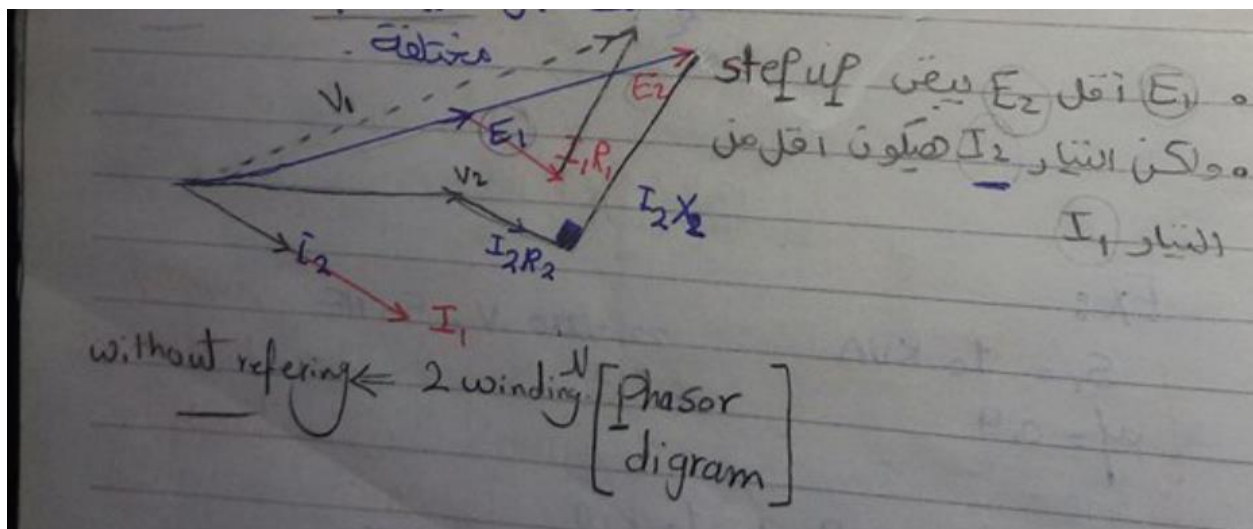 مختلفة
V₁
E₁
E₂
I₁R₁
V₂
I₂R₂
I₂X₂
I₂
I₁
• E₁ أقل E₂ يبقى step up
• ولكن التيار I₂ هيكون اقل من
التيار I₁
without refering ⇐ 2 winding الـ [Phasor
digram]